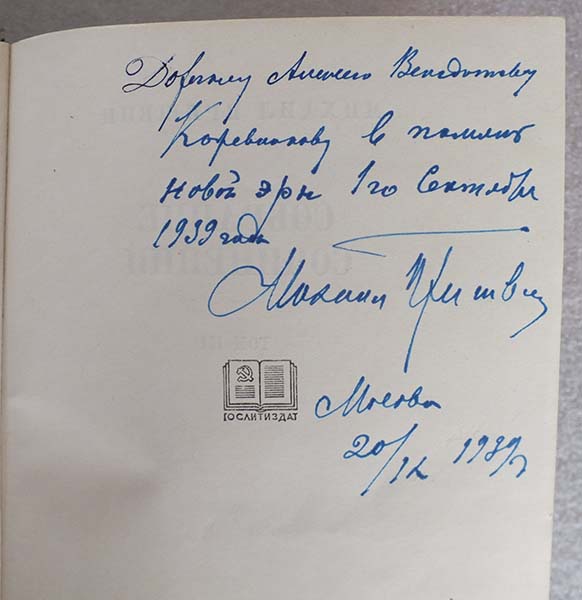 Дорогому Алексею Венедиктовичу
Коревинову в память
новой эры 1го Сентября
1939 года
Михаил Пришвин
ГОСЛИТИЗДАТ
Москва
20/IX 1939 г